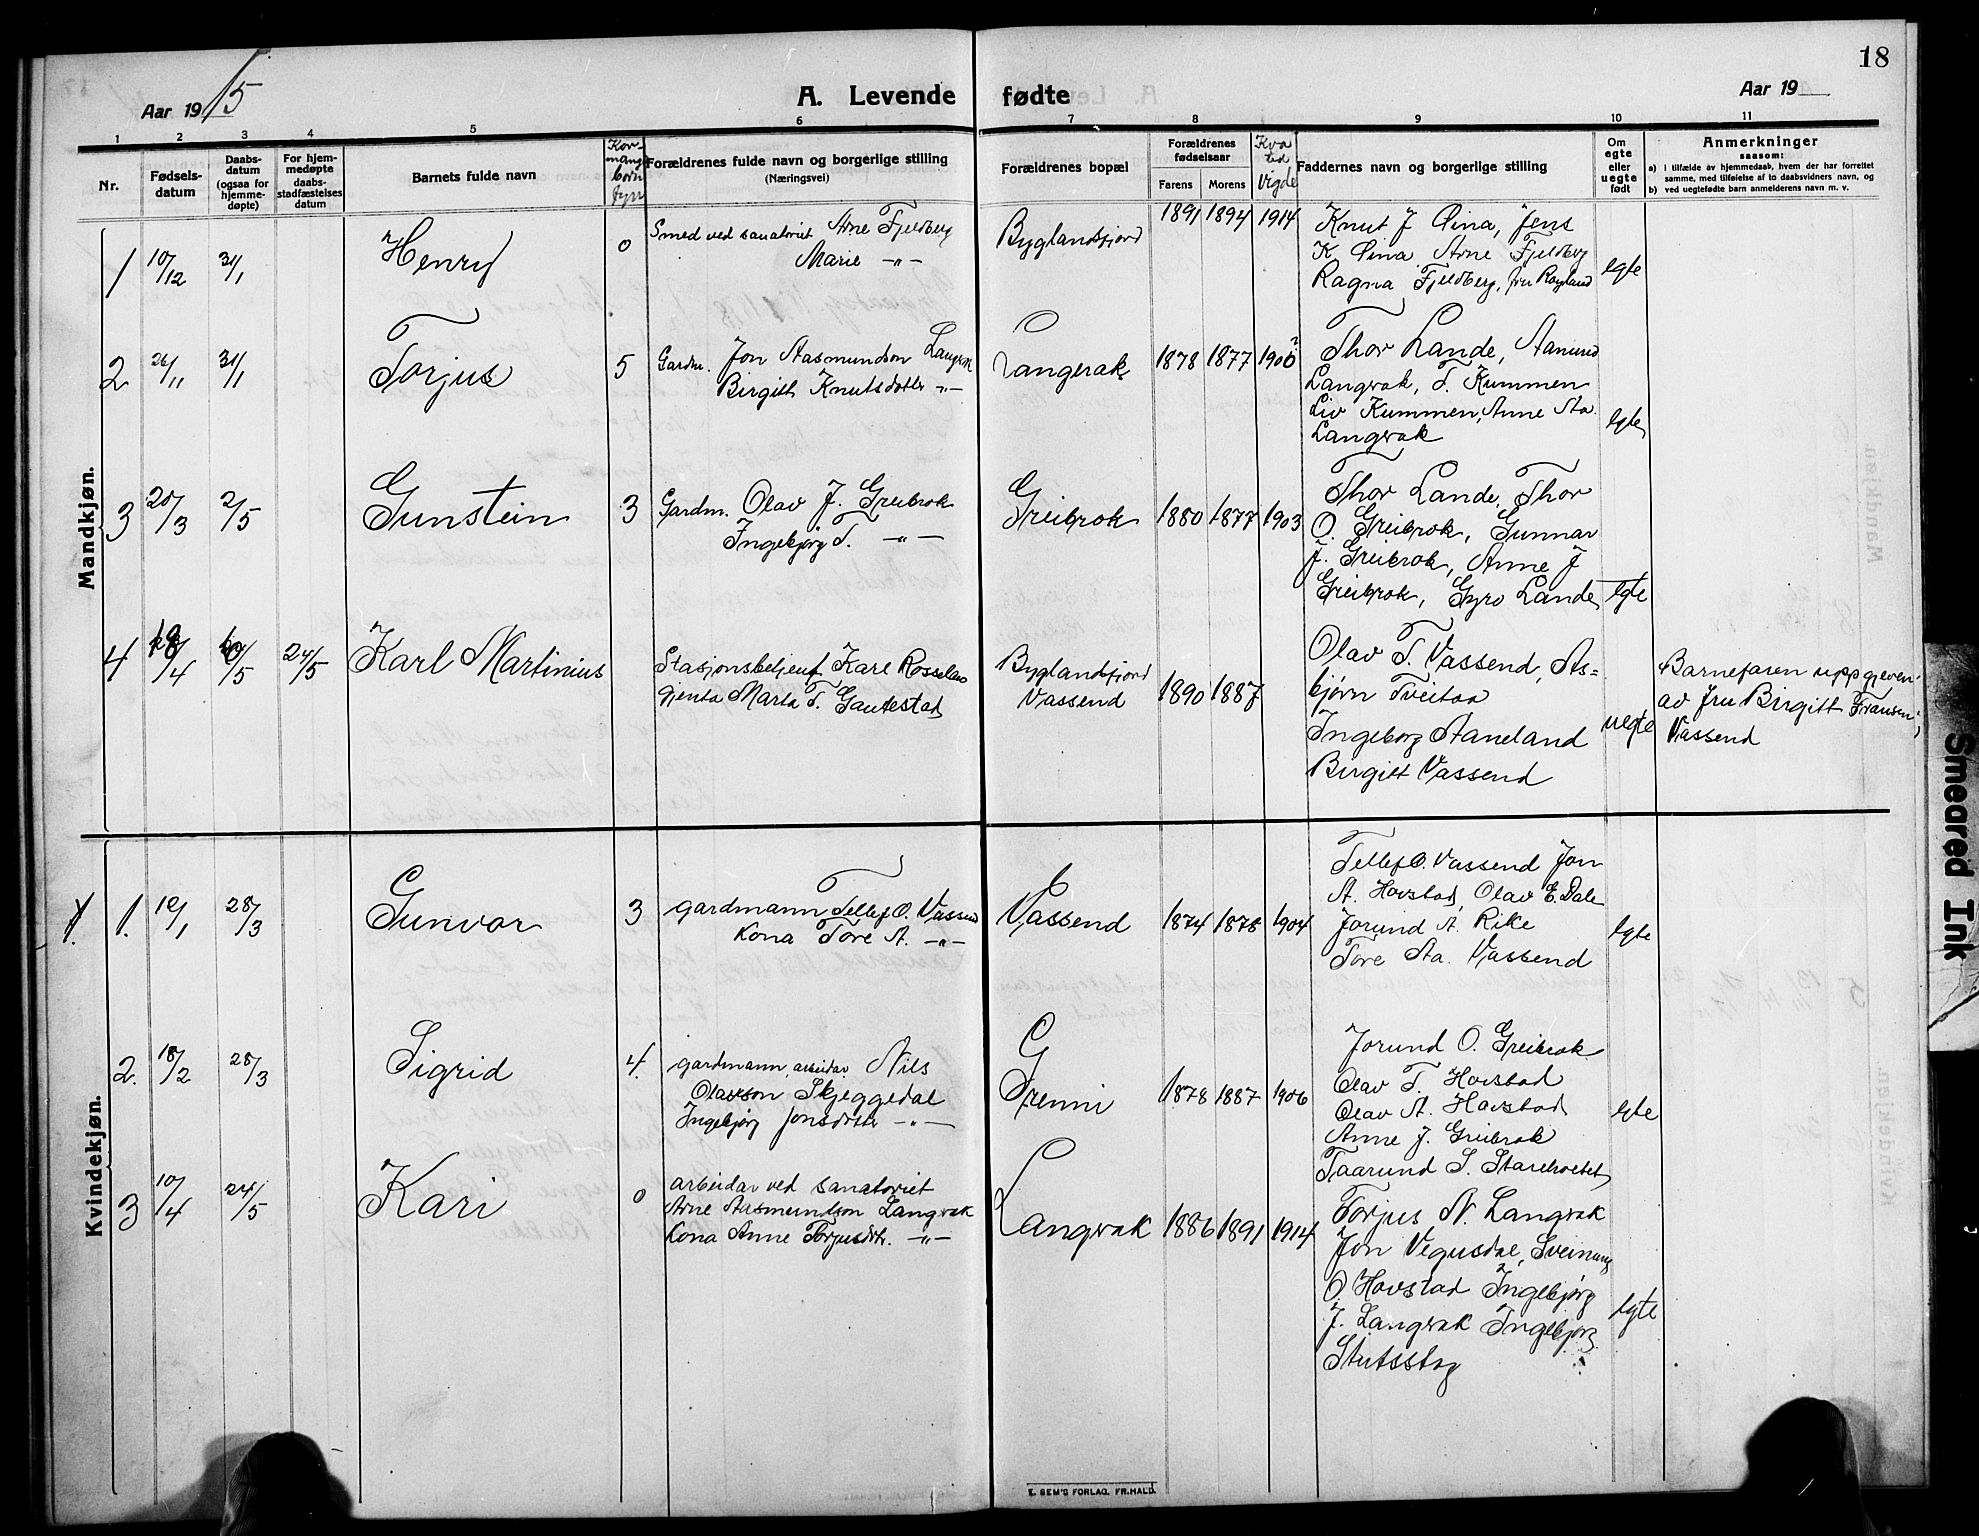 18
Aar 1915
A. Levende fødte
Aar 19
1 2 3 4 5 6 7 8 9 10 11
Nr.
Fødsels-
datum
Daabs-
datum
(ogsaa for
hjemme-
døpte)
For hjem-
medøpte
daabs-
stadfæstelses
datum
Barnets fulde navn
born
fyrr
Forældrenes fulde navn og borgerlige stilling
(Næringsvei)
Forældrenes bopæl
Forældrenes
fødselsaar
Farens Morens
Kva
tid
Vigde
Faddernes navn og borgerlige stilling
Om
egte
eller
uegte
født
Anmerkninger
saasom:
a) I tilfælde av hjemmedaab, hvem der har forrettet
samme, med tilføielse af to daabsvidners navn, og
b) ved uegtefødte barn anmelderens navn m. v.
Mandkjøn.
1 10/12 31/1 Henry 0 Smed ved sanatoriet Arne Fjeldberg
Marie -"-
Byglandsfjord 1891 1894 1914
Knut J Lina, Jens
K Lina Arne Fjeldberg
Ragna Fjeldberg, fru Røyland
egte
2 26/11 31/1 Torjus 5 Gardm. Jon Aasmundson Langerak
Birgitt Knutsdotter -"-
Langerak 1878 1877 1900
Thor Lande, Aamund
Langerak, T. Kummen
Liv Kummen, Anne Aa.
Langerak
egte
3 20/3 2/5 Gunstein 3 Gardm. Olav J. Greibrok
Ingebjørg T. -"-
Greibrok 1880 1877 1903
Thor Lande, Thor
O. Greibrok, Gunnar
J. Greibrok, Anne J
Greibrok, Gyro Lande
egte
4 18/4 /5 24/5 Karl Martinius
Stasjonsbetjent Karl Rosseland
gjenta Marta T. Gautestad
Byglandsfjord
Vassend 1890 1887
Olav T. Vassend, As=
bjørn Tveitaa
Ingeborg Staneland
Birgitt Vassend
uegte
Barnefaren uppgjeven
av fru Birgitt Fransen,
Vassend
Kvindekjøn.
1. 10/1 28/3 Gunvor 3 gardmann Tellef O. Vassend
Kona Tore A. -"-
Vassend 1874 1878 1904
Tellef O. Vassend Jon
A. Hovstad, Olav E. Dale
Jorund A. Rike
Tore Aa. Vassend
egte
2. 18/2 28/3 Sigrid 4. gardmann, arbeidar Nils
Olavson Skjeggedal
Ingebjørg Jonsdotter -"-
Grenni 1878 1887 1906
Jorund O. Greibrok
Olav T. Hovstad
Olav A. Hovstad
Anne J. Greibrok
Taarund S. Stareholtet
egte
3 10/4 24/5 Kari 0 arbeidar ved sanatoriet
Arne Aasmundson Langerak
Kona Anne Torjusdtr. -"-
Langerak 1886 1891 1914
Torjus N. Langerak
Jon Vegusdal, Sveinung
O. Hovstad Ingebjørg
J. Langerak Ingebjørg
Stutsstog
egte
E. SEM'S FORLAG, FR.HALD.
Smeared Ink